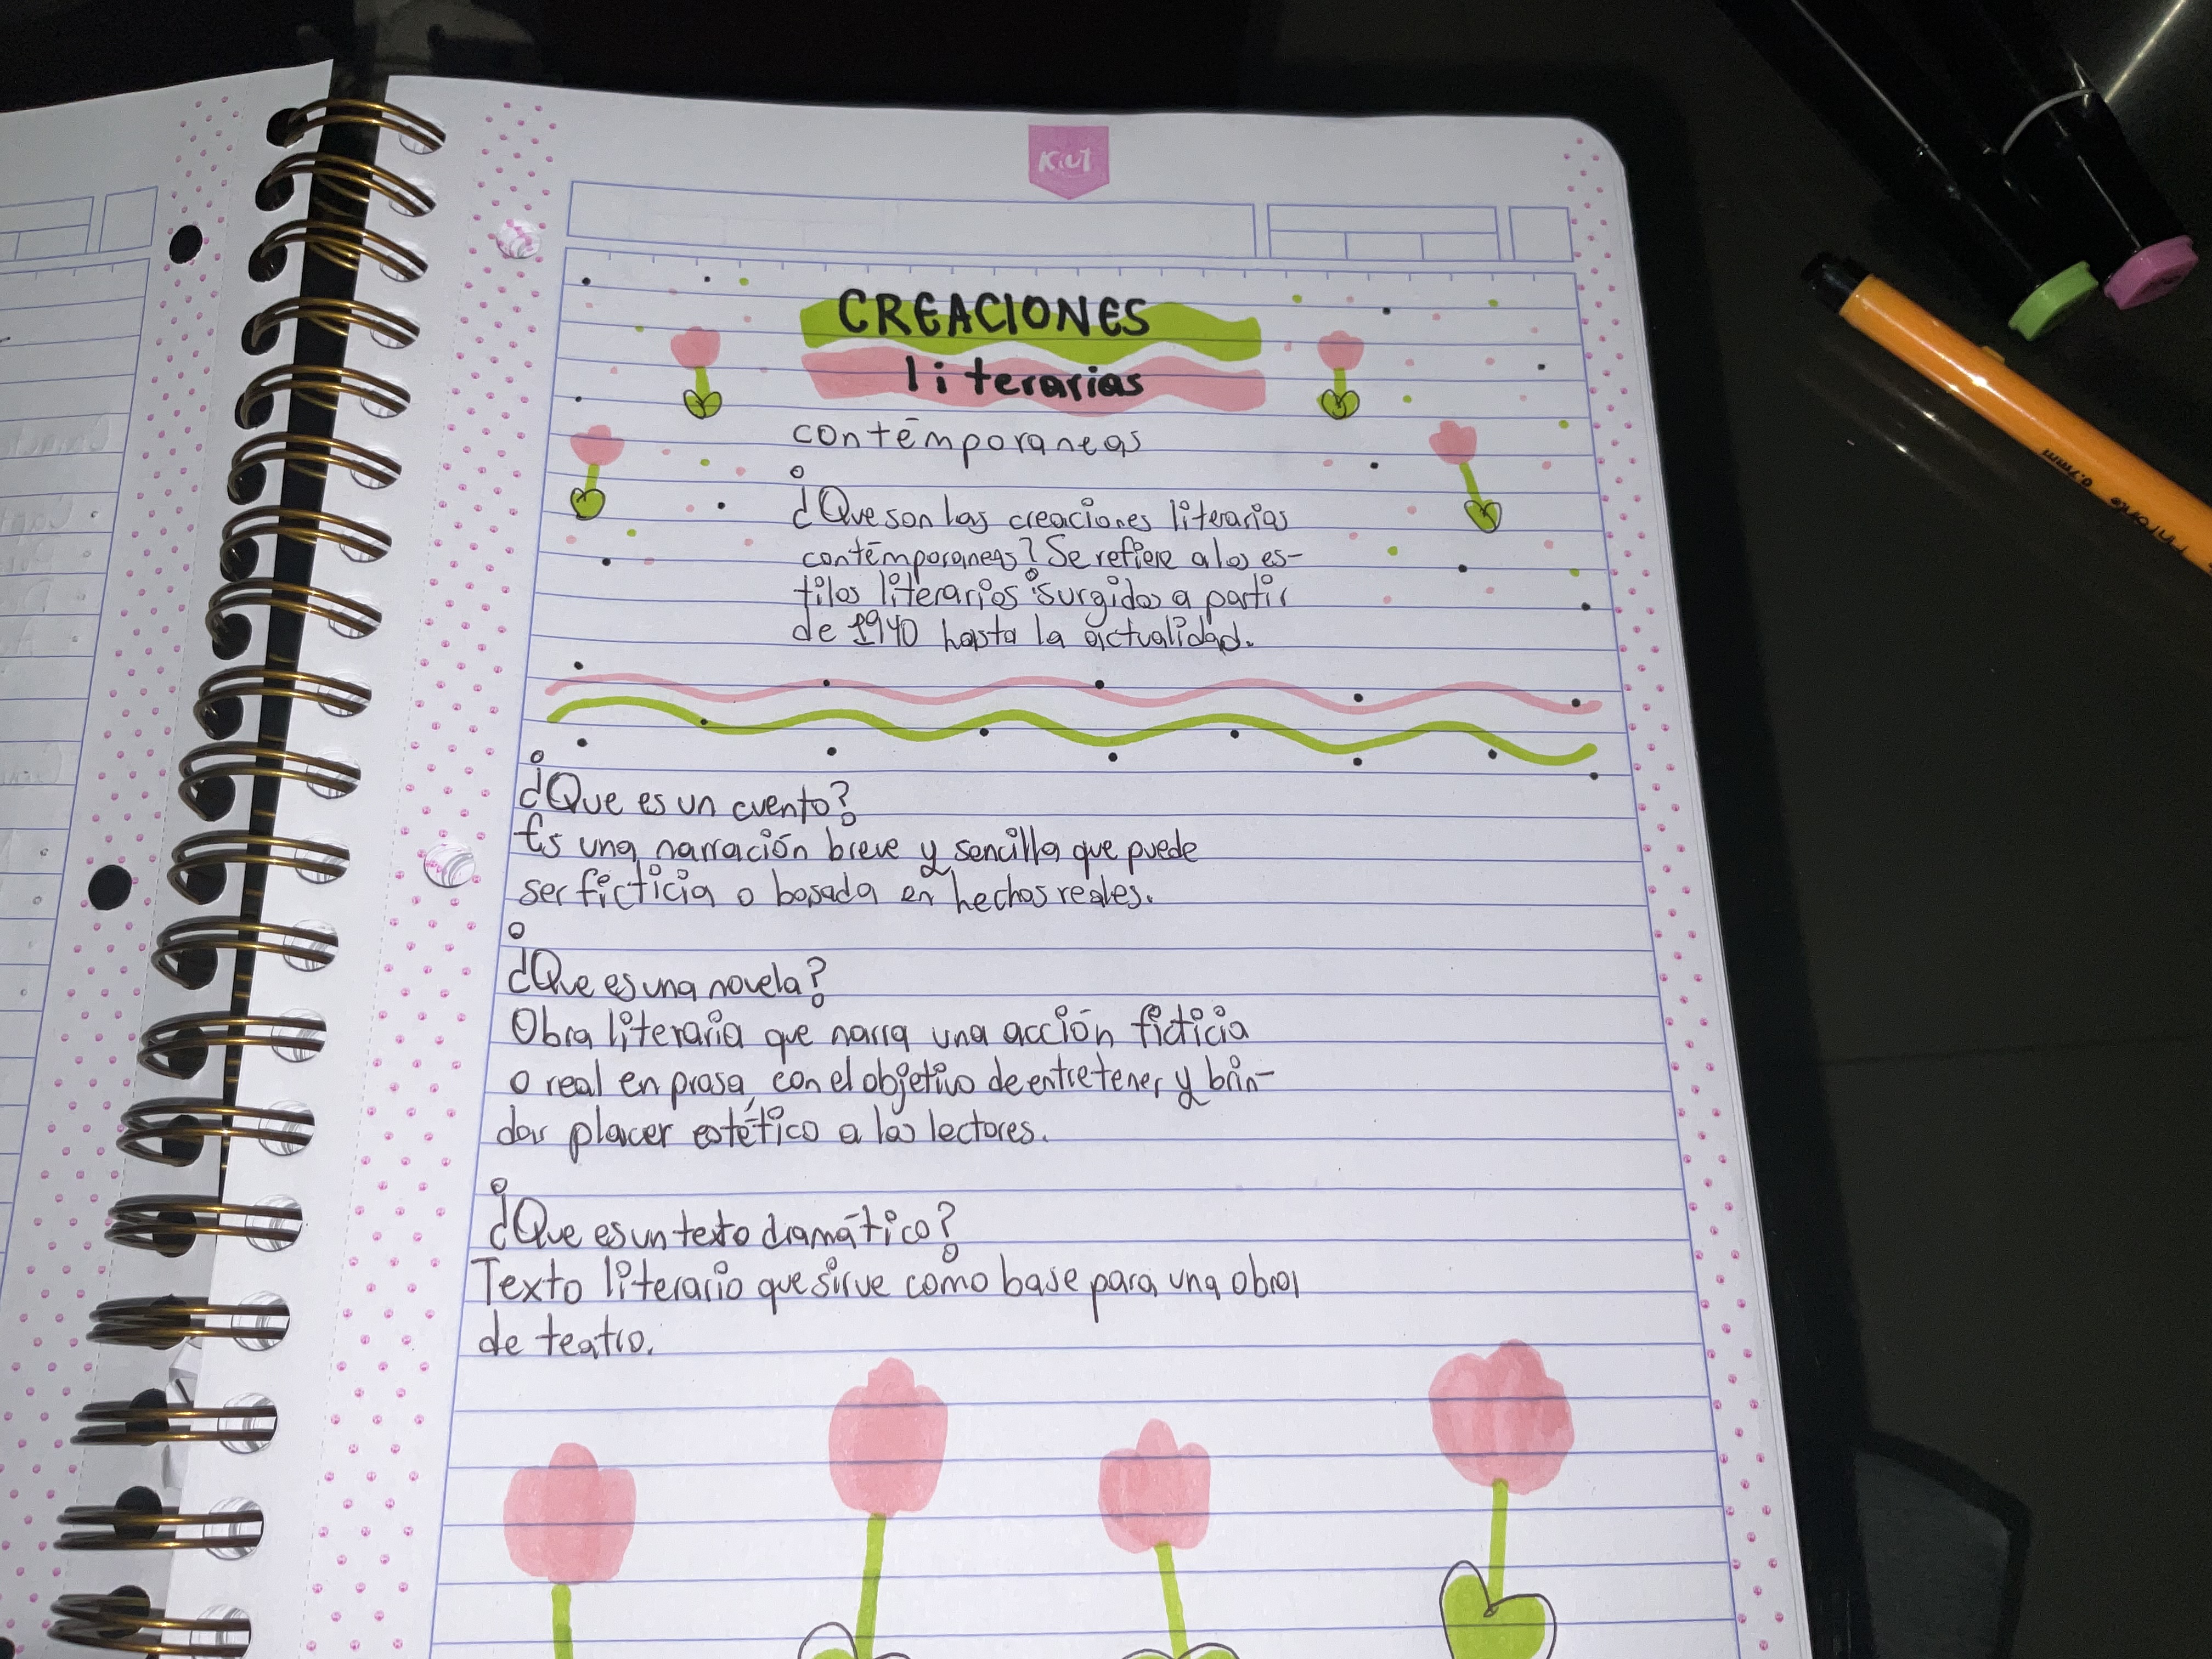 Kiut
CREACIONES
literarias
contēmporaneas
¿Que son las creaciones literarias
contēmporaneas? Se refiere a los es-
tilos literarios surgidos a partir
de 1940 hasta la actualidad.
¿Que es un cuento?
Es una narración breve y sencilla que puede
ser ficticia o basada en hechos reales.
¿Que es una novela?
Obra literaria que narra una acción ficticia
o real en prosa, con el objetivo de entretener y brin-
dar placer estético a los lectores.
¿Que es un texto dramático?
Texto literario que sirve como base para una obra
de teatro.
0.7mm